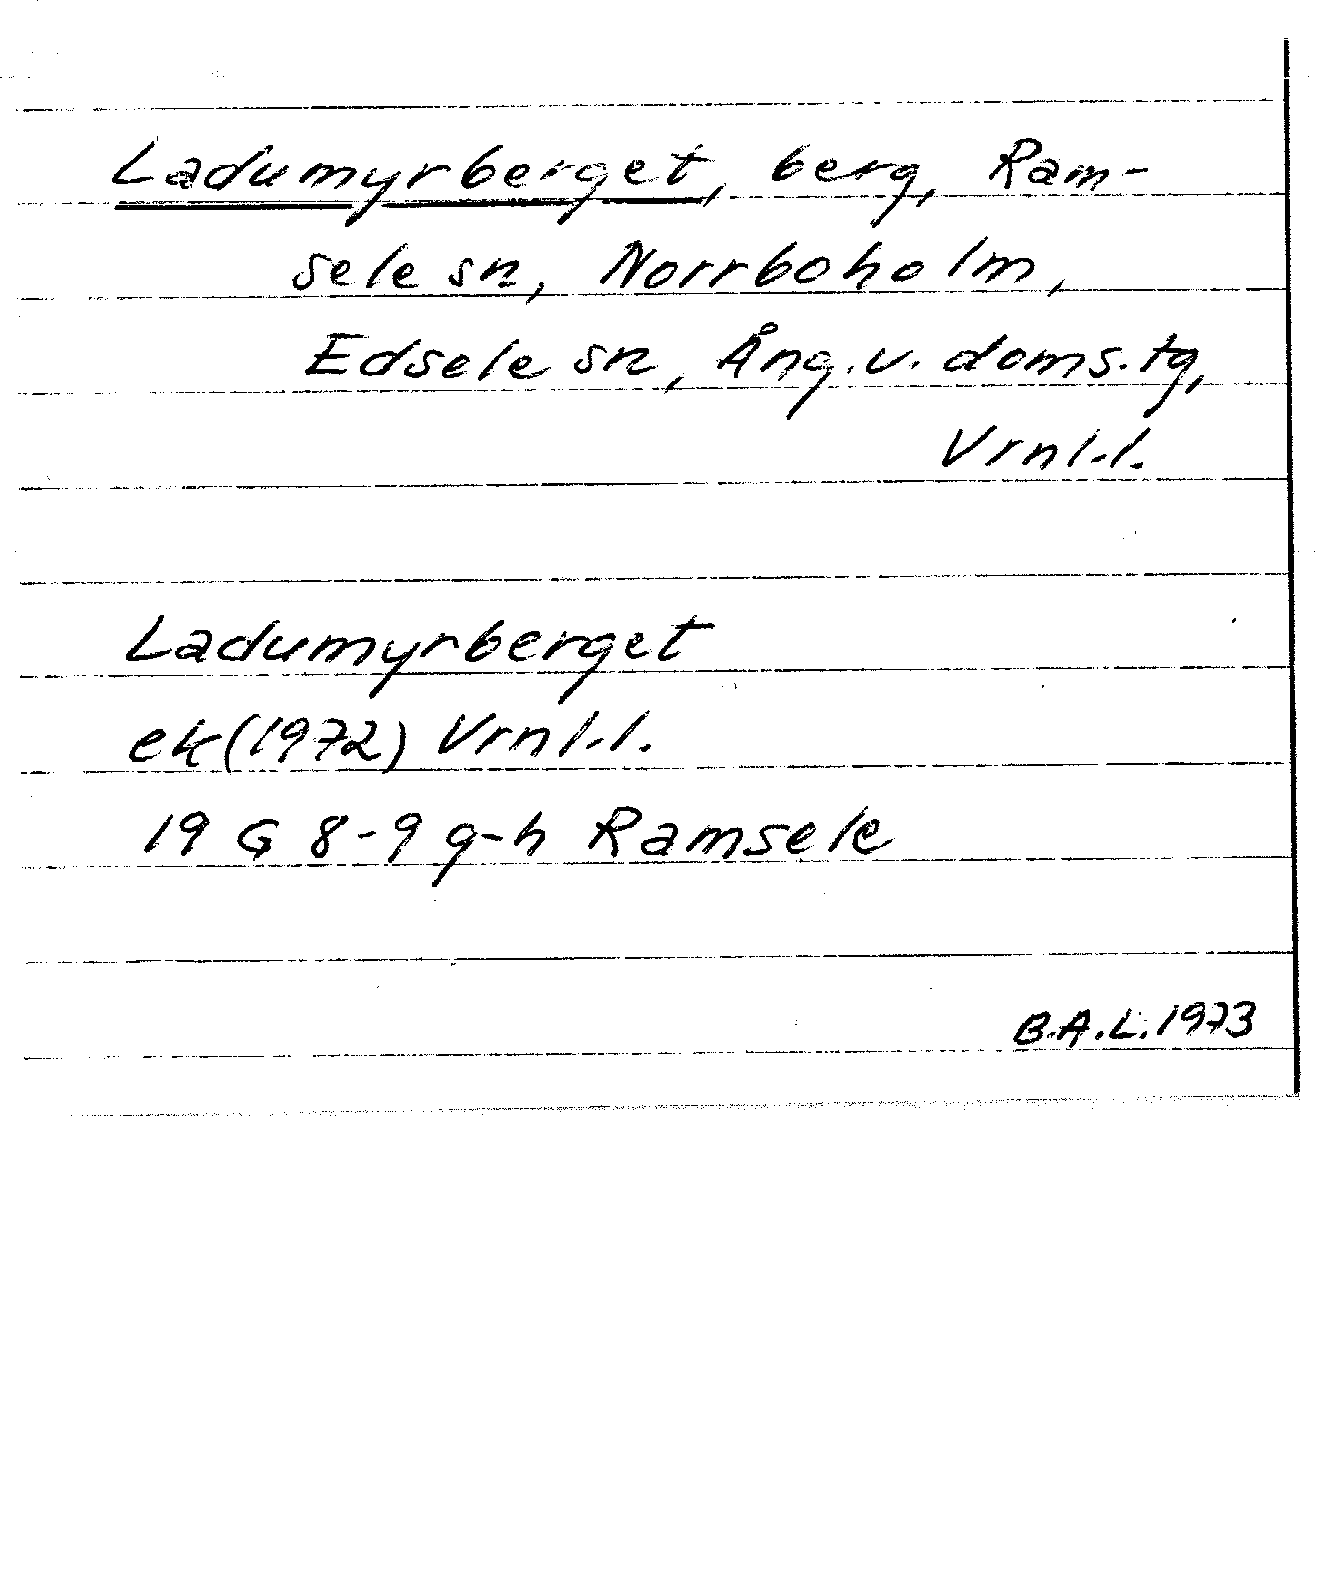 Ladumyrberget, berg, Ram-
sele sn, Norrboholm,
Edsele sn, Ång.v. doms.tg,
Vrnl.l.
Ladumyrberget
ek(1972) Vrnl.l.
19 G 8-9 g-h Ramsele
B.A.L. 1973